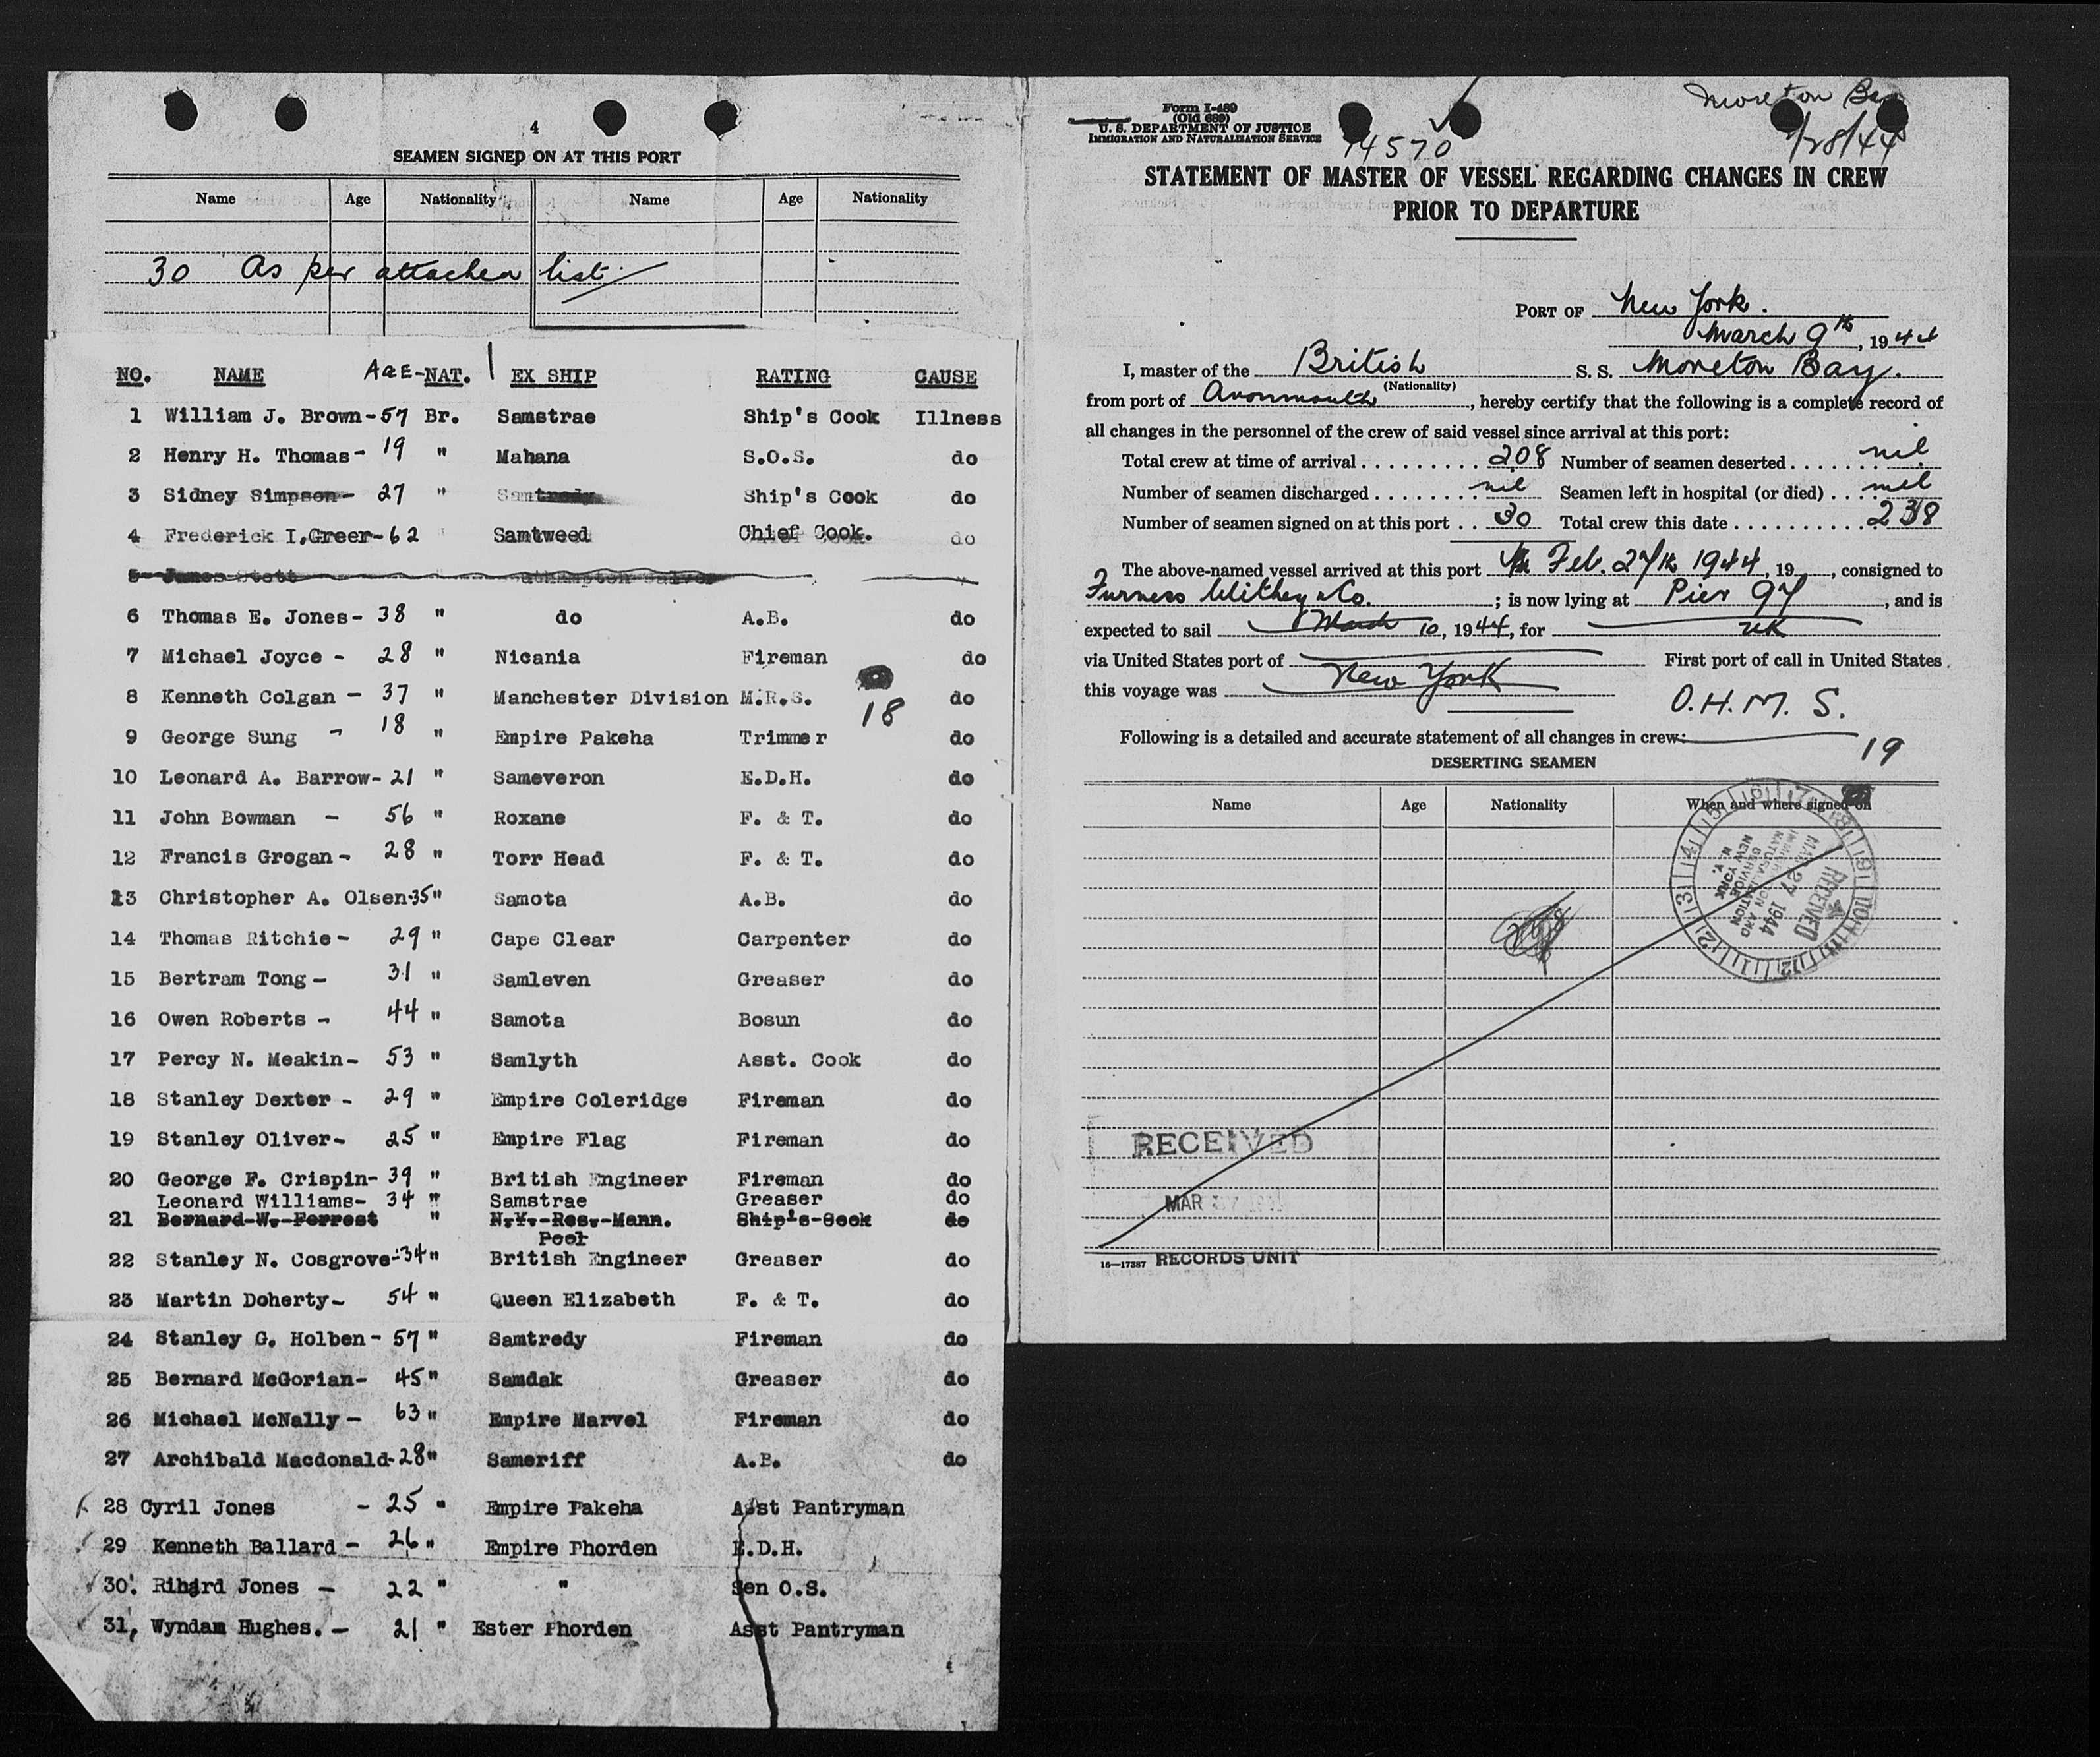 4
SEAMEN SIGNED ON AT THIS PORT
Name Age Nationality Name Age Nationality
30 As per attached list
NO. NAME AGE - NAT. EX SHIP RATING CAUSE
1 William J. Brown - 57 Br. Samstrae Ship's Cook Illness
2 Henry H. Thomas - 19 " Mahana S.O.S. do
3 Sidney Simpson - 27 " Samtredy Ship's Cook do
4 Frederick I. Greer - 62 " Samtweed Chief Cook. do
5 James Stott
6 Thomas E. Jones - 38 " do A.B. do
7 Michael Joyce - 28 " Nicania Fireman do
8 Kenneth Colgan - 37 " Manchester Division M.R.S. do
18
9 George Sung - 18 " Empire Pakeha Trimmer do
10 Leonard A. Barrow - 21 " Sameveron E.D.H. do
11 John Bowman - 56 " Roxane F. & T. do
12 Francis Grogan - 28 " Torr Head F. & T. do
13 Christopher A. Olsen - 35 " Samota A.B. do
14 Thomas Ritchie - 29 " Cape Clear Carpenter do
15 Bertram Tong - 31 " Samleven Greaser do
16 Owen Roberts - 44 " Samota Bosun do
17 Percy N. Meakin - 53 " Samlyth Asst. Cook do
18 Stanley Dexter - 29 " Empire Coleridge Fireman do
19 Stanley Oliver - 25 " Empire Flag Fireman do
20 George F. Crispin - 39 " British Engineer Fireman do
Leonard Williams - 34 " Samstrae Greaser do
21 Bernard W. Forrest " N.Y. Res. Mann. Ship's Cook do
Pool
22 Stanley N. Cosgrove - 34 " British Engineer Greaser do
23 Martin Doherty - 54 " Queen Elizabeth F. & T. do
24 Stanley G. Holben - 57 " Samtredy Fireman do
25 Bernard McGorian - 45 " Samdak Greaser do
26 Michael McNally - 63 " Empire Marvel Fireman do
27 Archibald Macdonald - 28 " Sameriff A.B. do
28 Cyril Jones - 25 " Empire Pakeha Asst Pantryman
29 Kenneth Ballard - 26 " Empire Phorden E.D.H.
30. Rihard Jones - 22 " " Sen O.S.
31, Wyndam Hughes. - 21 " Ester Phorden Asst Pantryman
Moreton Bay
Form I-489
(Old 689)
U. S. DEPARTMENT OF JUSTICE
IMMIGRATION AND NATURALIZATION SERVICE
74570
/28/44
STATEMENT OF MASTER OF VESSEL REGARDING CHANGES IN CREW
PRIOR TO DEPARTURE
PORT OF New York.
March 9th, 1944
I, master of the British S. S. Moreton Bay.
(Nationality)
from port of Avonmouth, hereby certify that the following is a complete record of
all changes in the personnel of the crew of said vessel since arrival at this port:
Total crew at time of arrival 208 Number of seamen deserted nil
Number of seamen discharged nil Seamen left in hospital (or died) nil
Number of seamen signed on at this port 30 Total crew this date 238
The above-named vessel arrived at this port Feb. 27th 1944, 19 , consigned to
Furness Withey & Co. ; is now lying at Pier 97 , and is
expected to sail March 10, 1944, for UK
via United States port of First port of call in United States
this voyage was New York
O.H.M.S.
Following is a detailed and accurate statement of all changes in crew:
19
DESERTING SEAMEN
Name Age Nationality When and where signed on
RECEIVED
MAR 27 1944
IMMIGRATION AND
NATURALIZATION
SERVICE
NEW YORK
N. Y.
RECEIVED
MAR 27
16—17387 RECORDS UNIT